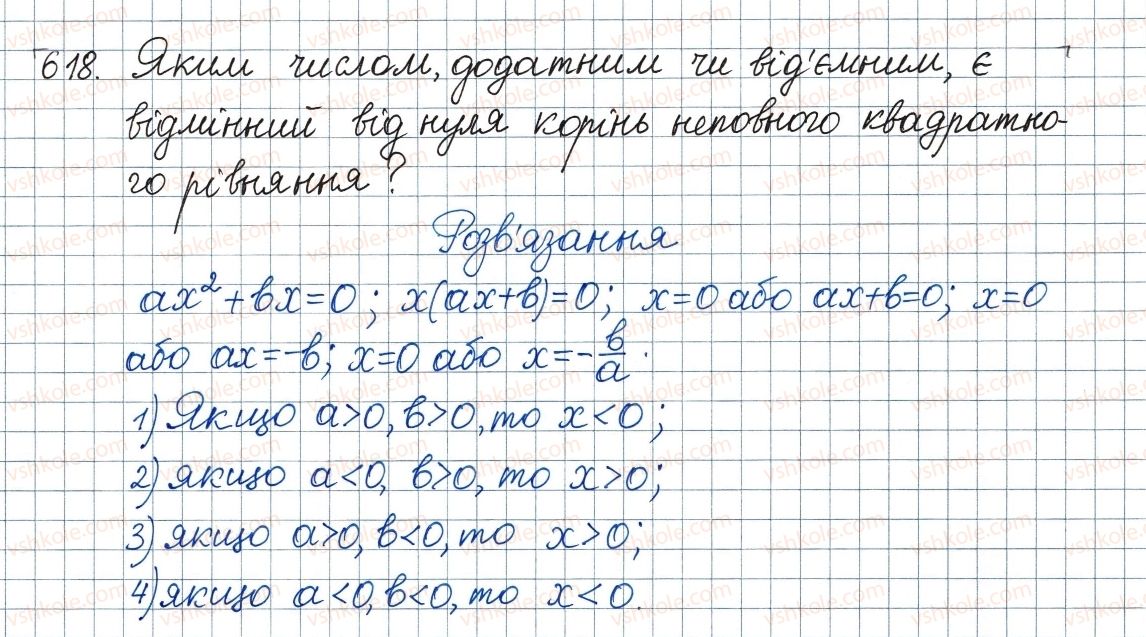 618. Яким числом, додатним чи від'ємним, є
відмінний від нуля корінь неповного квадратно-
го рівняння?
Розв'язання
ax² + bx = 0; x(ax+b)=0; x=0 або ax+b=0; x=0
або ax=-b; x=0 або x=-b/a.
1) Якщо a>0, b>0, то x<0;
2) якщо a<0, b>0, то x>0;
3) якщо a>0, b<0, то x>0;
4) якщо a<0, b<0, то x<0.